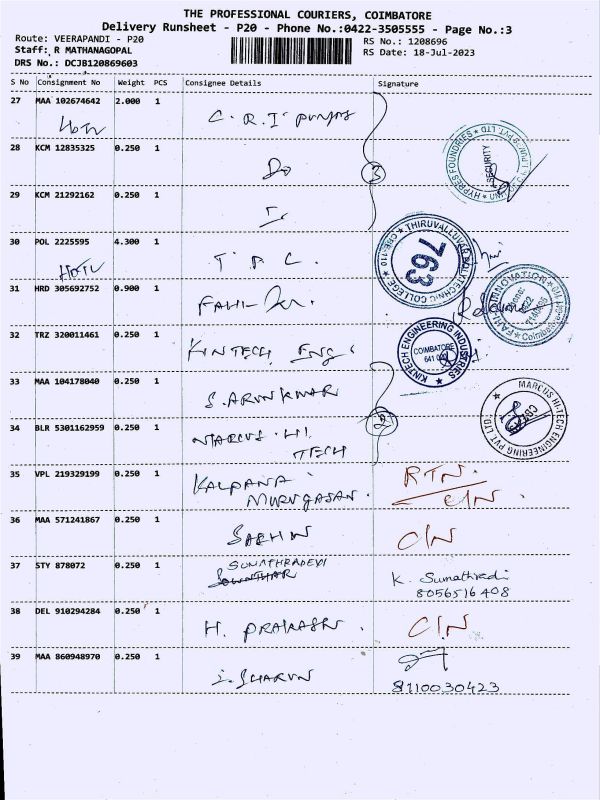 THE PROFESSIONAL COURIERS, COIMBATORE
Delivery Runsheet - P20 - Phone No.:0422-3505555 - Page No.:3
Route: VEERAPANDI - P20
Staff: R MATHANAGOPAL
DRS No.: DCJB120869603
RS No.: 1208696
RS Date: 18-Jul-2023
S No Consignment No Weight PCS Consignee Details Signature
27 MAA 102674642 2.000 1
28 KCM 12835325 0.250 1 Do
3
HYPRES FOUNDRIES
SECURITY
29 KCM 21292162 0.250 1
30 POL 2225595 4.300 1 T P C.
THIRUVALLUVAR POLYTECHNIC COLLEGE
CBE-110
763
31 HRD 305692752 0.900 1
32 TRZ 320011461 0.250 1 KINTECH Eng
KINTECH ENGINEERING INDUSTRIES
COIMBATORE
33 MAA 104178040 0.250 1 S. ARUNKUMAR
34 BLR 5301162959 0.250 1 MARCUS HI
TECH
2
MARCUS HI-TECH ENGINEERING PVT LTD
35 VPL 219329199 0.250 1 KALPANA
MURUGASAN.
RTN.
C/N
36 MAA 571241867 0.250 1 C/N
37 STY 878072 0.250 1 SUMATHRADEVI
K. Sumathradi
8056516408
38 DEL 910294284 0.250 1 H. PRAKASH . C/N
39 MAA 860948970 0.250 1
8110030423